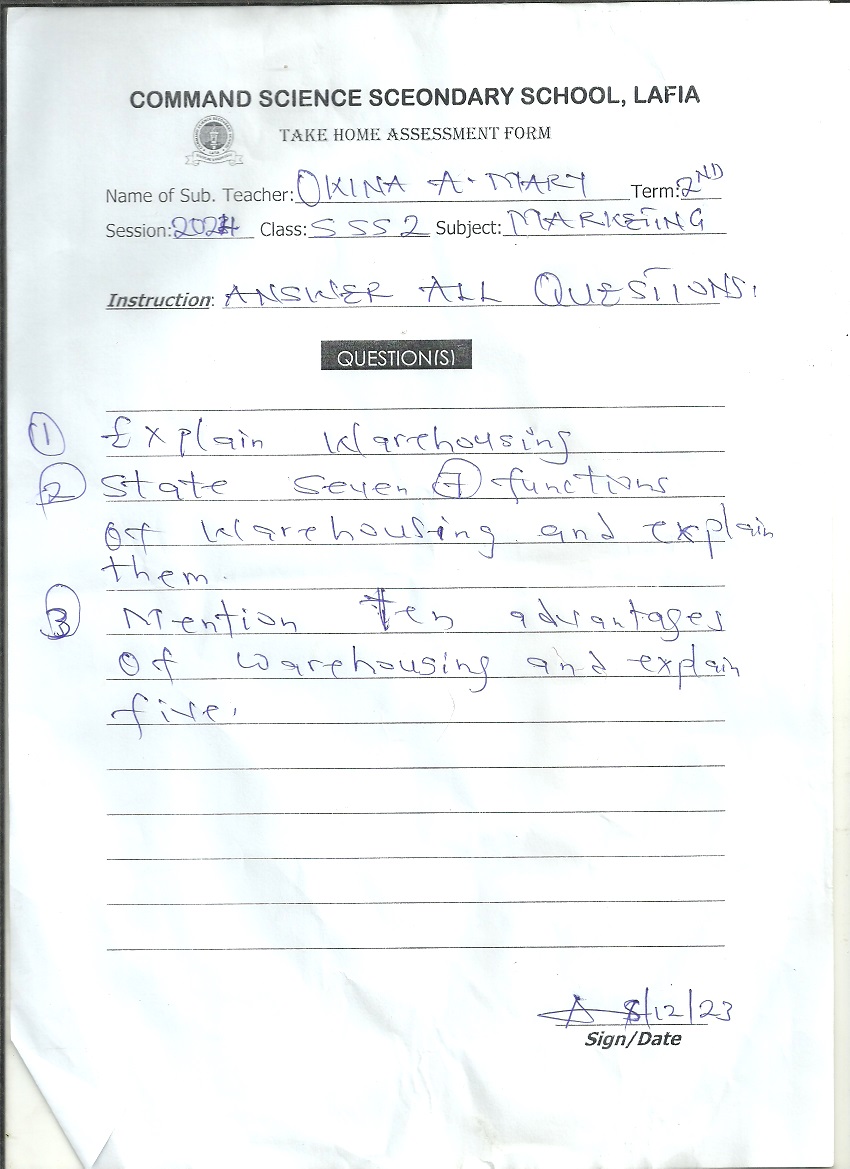 COMMAND SCIENCE SCEONDARY SCHOOL, LAFIA
TAKE HOME ASSESSMENT FORM
Name of Sub. Teacher: OKINA A. MARY Term: 2ND
Session: 2024 Class: SSS2 Subject: MARKETING
Instruction: ANSWER ALL QUESTIONS.
QUESTION(S)
1 Explain Warehousing
2 State seven 7 functions
of Warehousing and explain
them.
3 Mention Ten advantages
of warehousing and explain
five.
8/12/23
Sign/Date